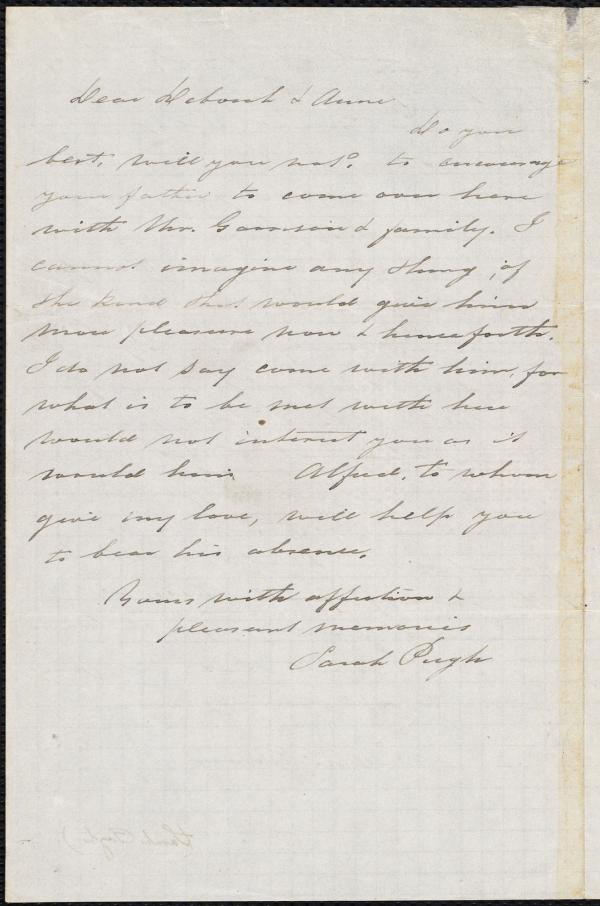 Dear Deborah & Anne
Do you
best, will you not? to encourage
your father to come over here
with Mr. Garrison & family. I
cannot imagine any thing, of
the kind that would give him
more pleasure now & henceforth.
I do not say come with him, for
what is to be met with here
would not interest you as it
would him. Alfred, to whom
give my love, will help you
to bear his absence.
Yours with affection &
pleasant memories
Sarah Pugh